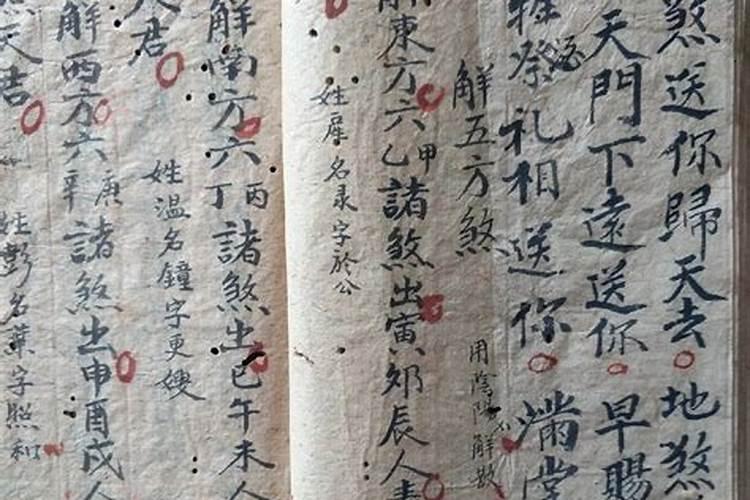 煞送你歸天去地煞
天門下遠送你早賜
祭礼相送你滿堂
解五方煞
用陰陽解散
解東方六甲乙諸煞出寅卯辰人
姓 名录字於公
解南方六丙丁諸煞出巳午未人
姓溫名鐘字更嫂
君
解西方六庚辛諸煞出申酉戌人
姓彭名葉字照和
天君